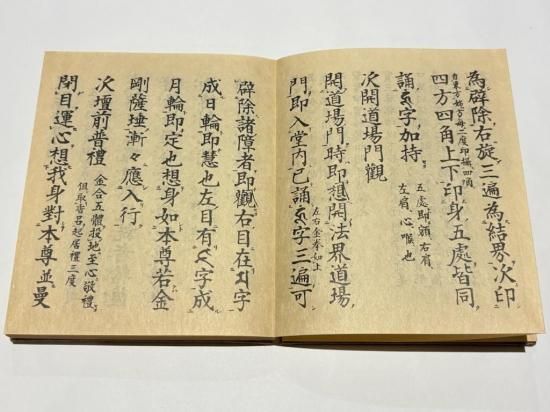 為辟除右旋三遍為結界次印
四方四角上下印身五處皆同
誦字加持 五處即額右肩
左肩心喉也
次開道場門觀
開道場門時即想開法界道場
門即入堂内已誦字三遍可
左右金拳如上
辟除諸障者即觀右目在字
成日輪即慧也左目有字成
月輪即定也想身如本尊若金
剛薩埵漸々應入行
次壇前普禮 金合五體投地至心敬禮
俱取香呂起居禮三度
閉目運心想我身對本尊並曼